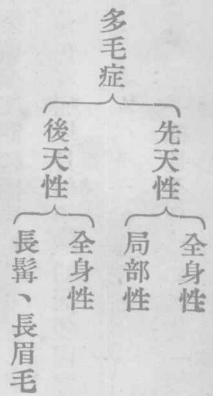 多毛症
先天性
全身性
局部性
後天性
全身性
長髯、長眉毛